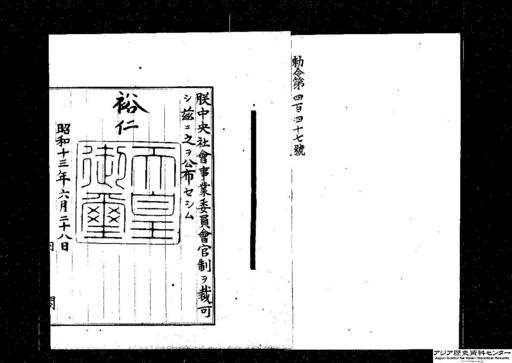 勅令第四百四十七號
朕中央社會事業委員會官制ヲ裁可
シ茲ニ之ヲ公布セシム
裕仁
天皇
御璽
昭和十三年六月二十八日
内 閣
アジア歴史資料センター
Japan Center for Asian Historical Records